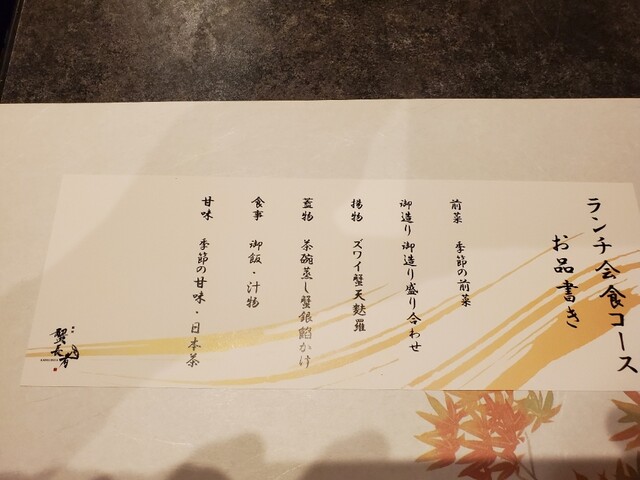 ランチ会食コース
お品書き
前菜 季節の前菜
御造り 御造り盛り合わせ
揚物 ズワイ蟹天麩羅
蓋物 茶碗蒸し蟹銀餡かけ
食事 御飯・汁物
甘味 季節の甘味・日本茶